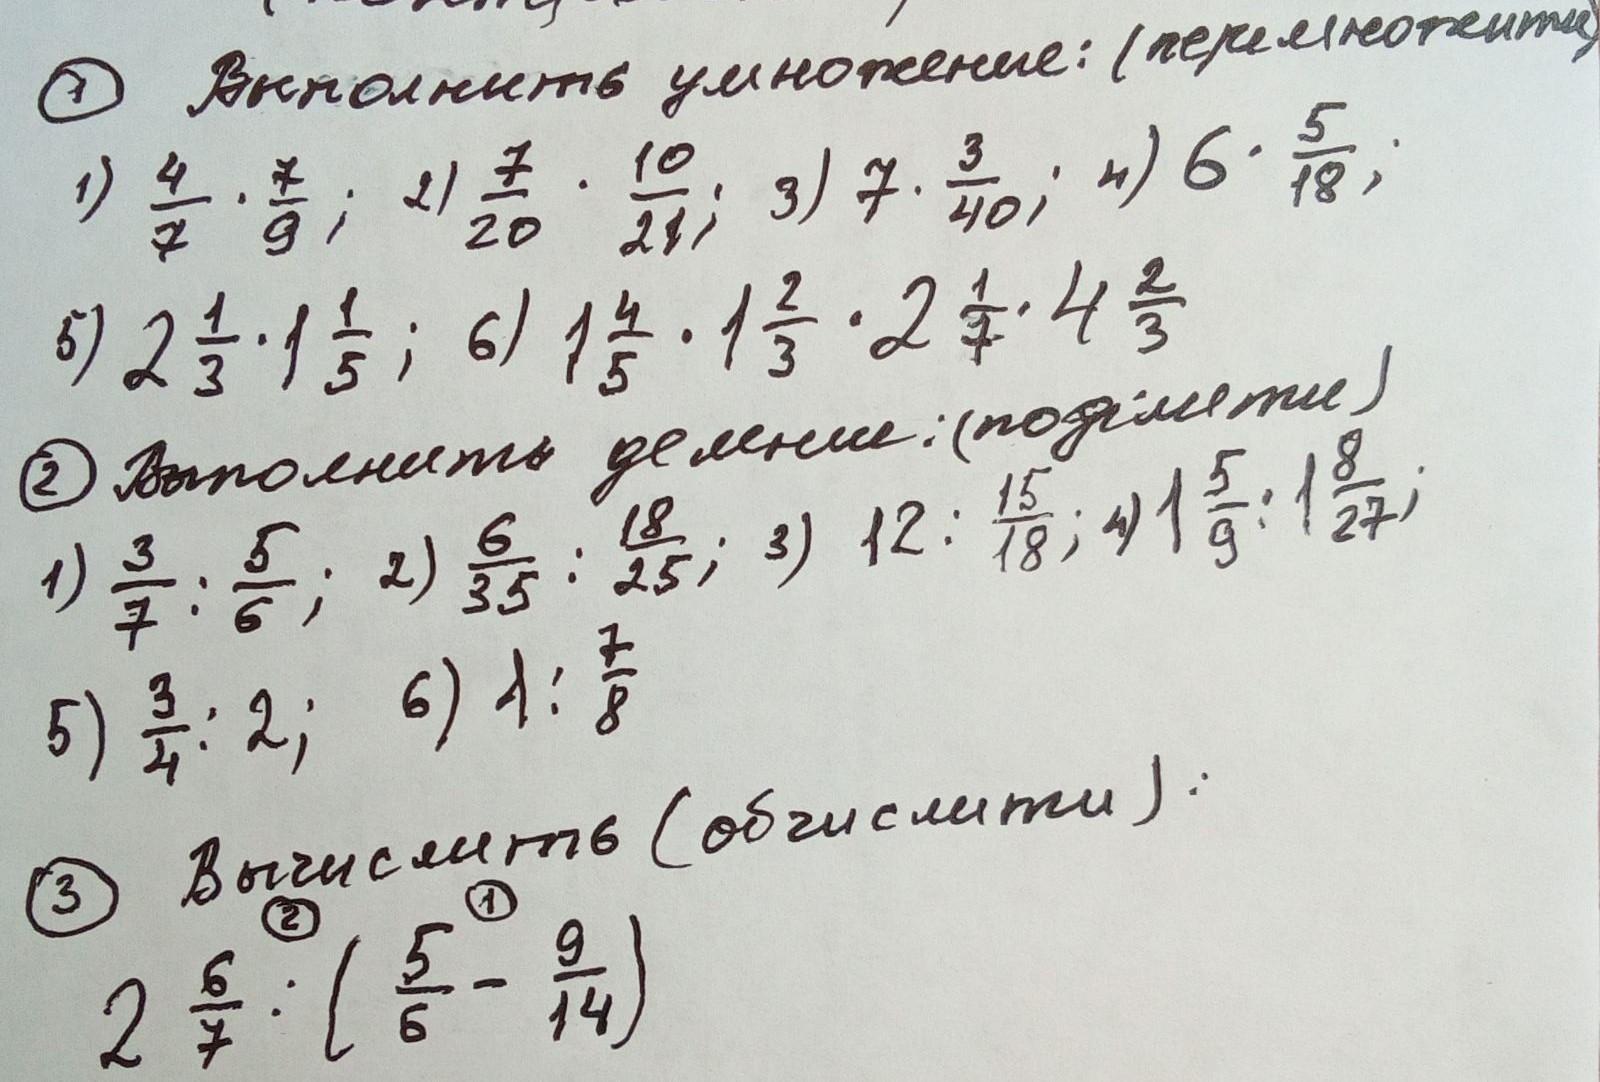 ① Выполнить умножение: (перемножити)
1) 4/7 · 7/9; 2) 7/20 · 10/21; 3) 7 · 3/40; 4) 6 · 5/18;
5) 2 1/3 · 1 1/5; 6) 1 4/5 · 1 2/3 · 2 1/7 · 4 2/3
② Выполнить деление: (поділити)
1) 3/7 : 5/6; 2) 6/35 : 18/25; 3) 12 : 15/18; 4) 1 5/9 : 1 8/27;
5) 3/4 : 2; 6) 1 : 7/8
③ Вычислить (обчислити):
② ①
2 6/7 : (5/6 - 9/14)